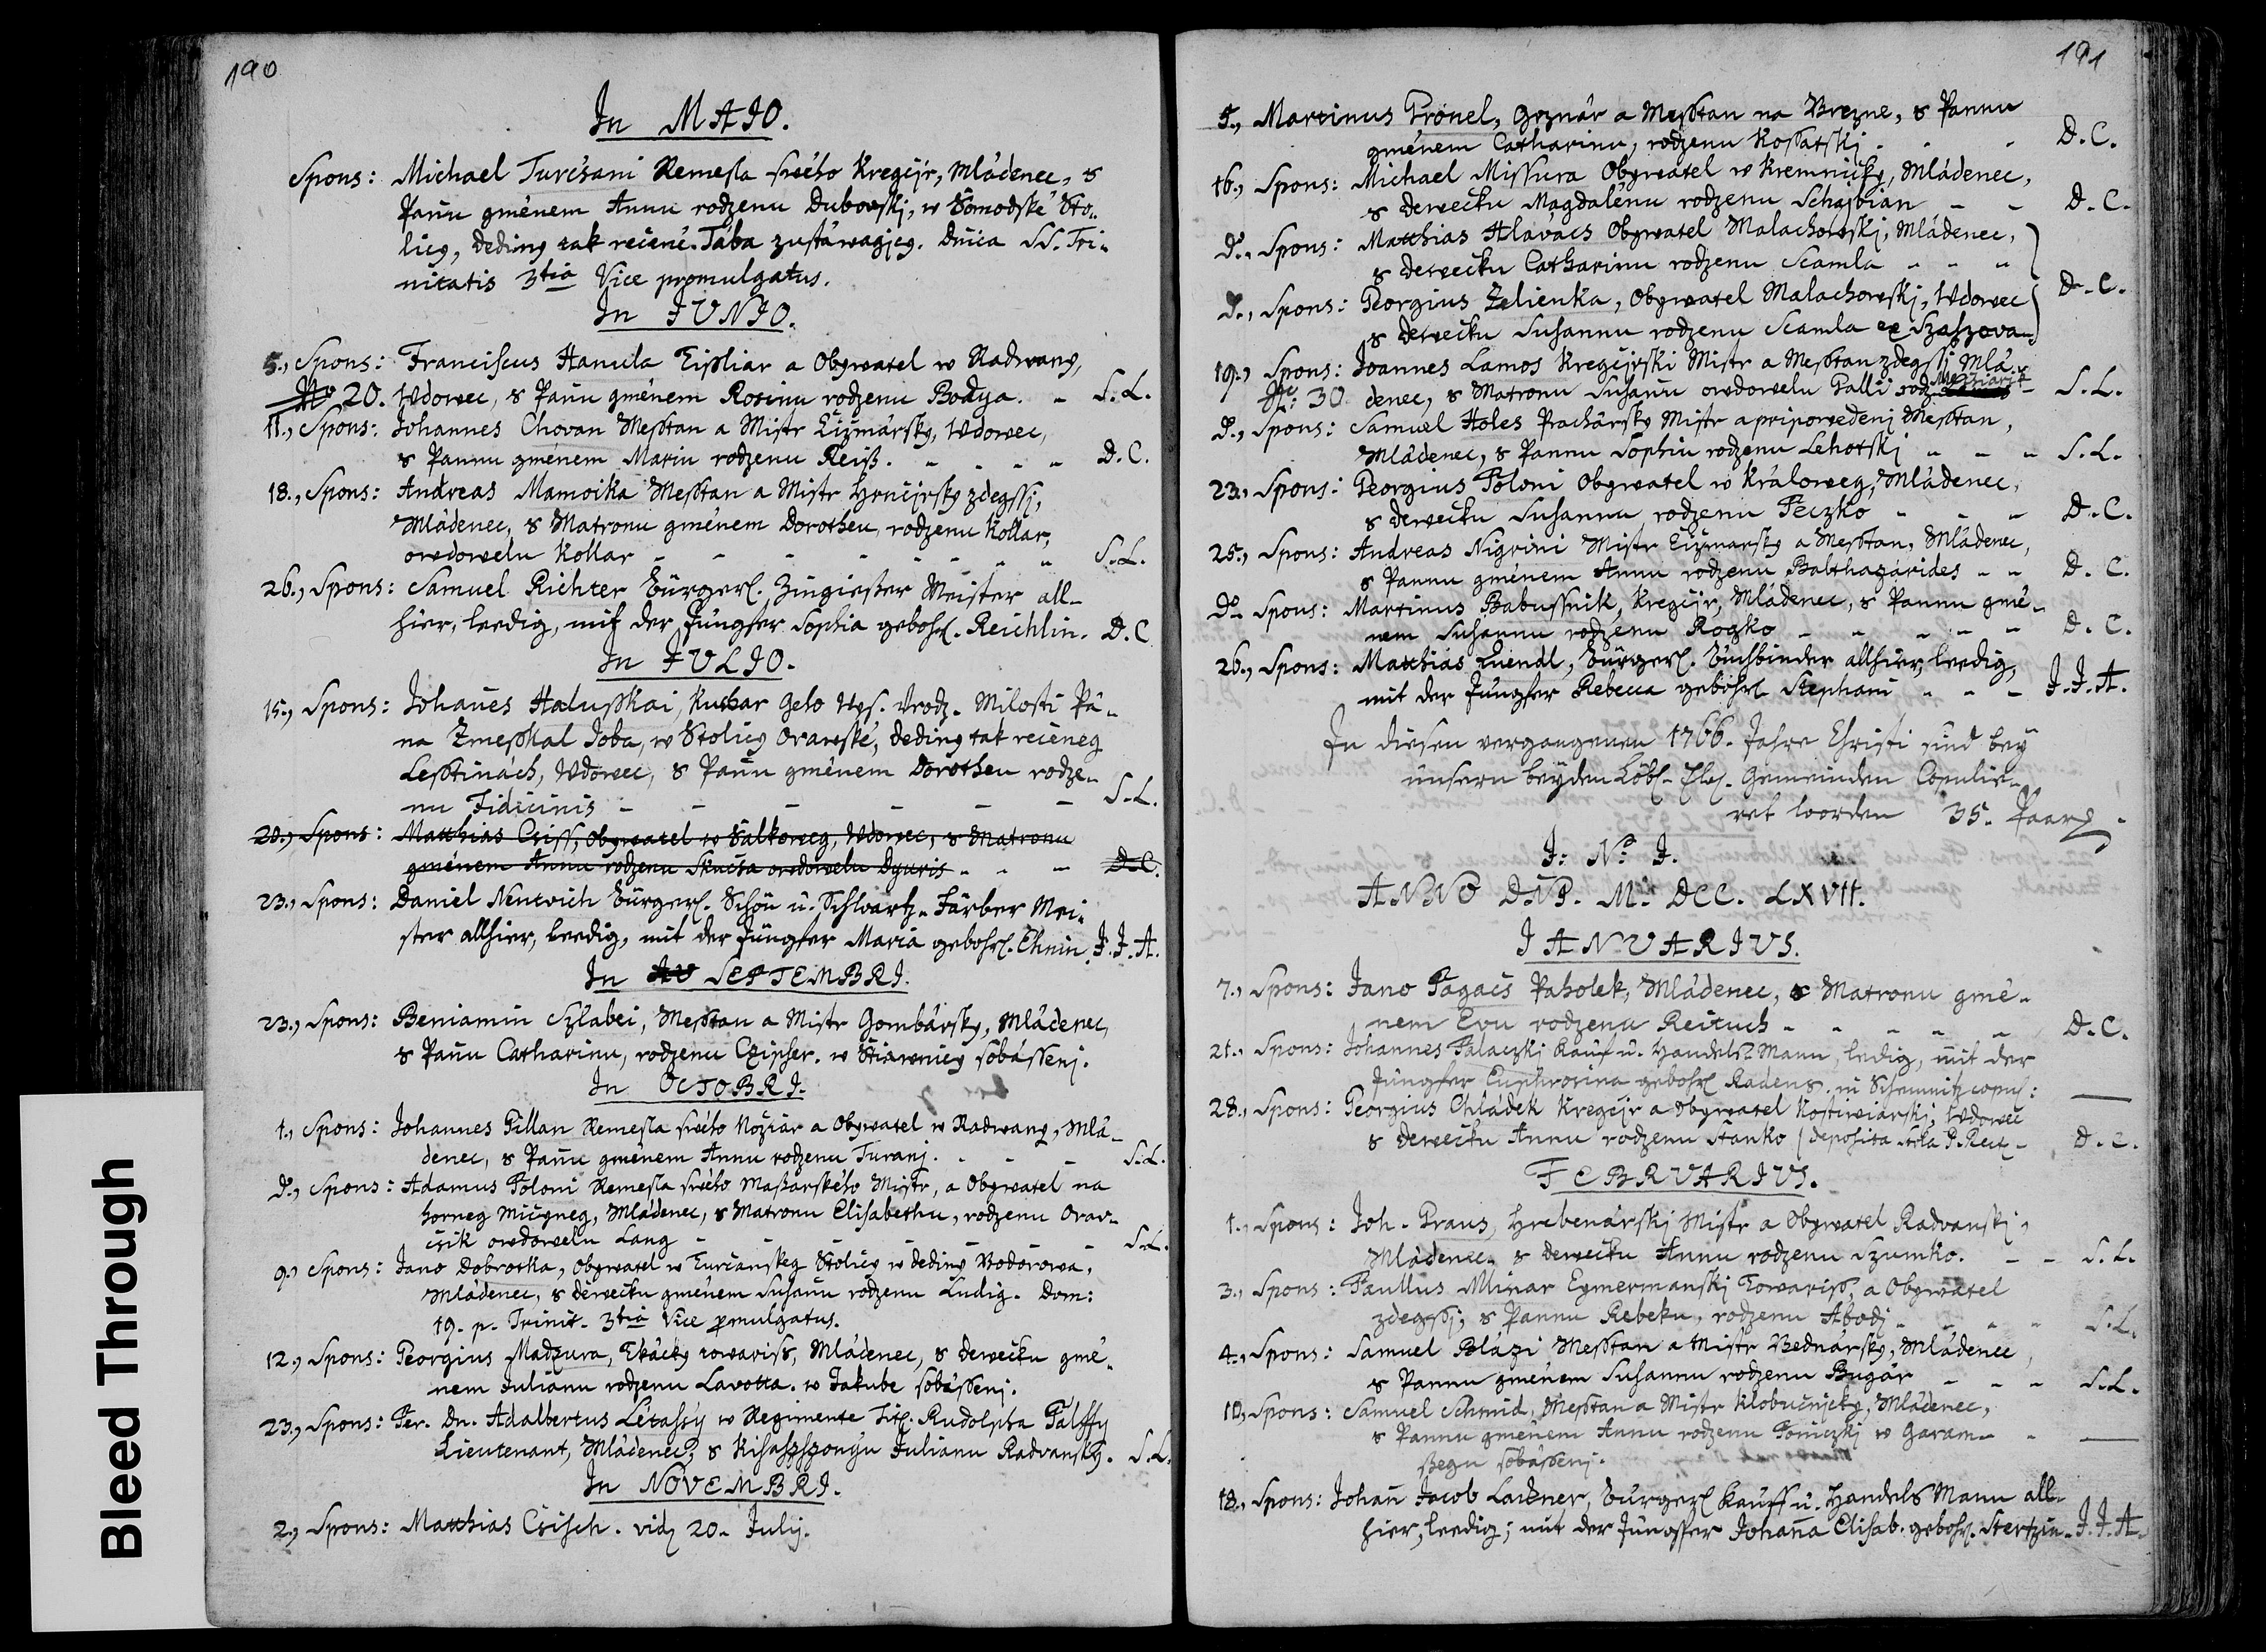 190
In MAJO.
Spons: Michael Turcsani Remesla swého Kregčjr, Mládenec, s
Pañu gménem Annu rodzenu Dubowskj, w Šomodské Sto-
licy, dediny tak rečené Tába zustáwagjcy. Dñica SS. Tri-
nitatis 3tia Vice promulgatus.
In JUNJO.
5., Spons: Franciscus Hanula Čipliar a Obywatel w Radwany,
20. Wdowec, s Pañu gménem Rosinu rodzenu Bodya. - S.L.
11., Spons: Johannes Chovan Messtan a Mistr Čizmársky, Wdowec,
s Pannu gménem Mariu rodzenu Reiß. - - - - D.C.
18., Spons: Andreas Mamoika Messtan a Mistr Hrnčjrsky zdegssj,
Mládenec, s Matronu gménem Dorotheu, rodzenu Kollar,
owdowelu Kollar - - - - - - - - S.L.
26., Spons: Samuel Richter Bürgerl. Zingießer Meister all-
hier, leedig, mit der Jungfer Sophia gebohrl. Reichlin. D.C.
In JULJO.
15., Spons: Johañes Halusskai, Kuchar Geho Wys. Urodz. Milosti Pá-
na Zmesskal Joba, w Stolicy Orawské, dediny tak rečeneg
Lesstinách, Wdowec, s Pañu gménem Dorotheu rodze-
nu Fidicinis - - - - - - S.L.
20., Spons: Matthias Csiss, Obywatel w Salkoweg, Wdowec, s Matronu
gménem Annu rodzenu Skucsa owdowelu Dyuris - - - D.C.
23., Spons: Daniel Nentwich Bürgerl. Schön u. Schwartz-Färber Mei-
ster allhier, leedig, mit der Jungfer Maria gebohrl. Ehnin. J.J.A.
In SEPTEMBRI.
23., Spons: Beniamin Szlabei, Messtan a Mistr Gombársky, Mládenec,
s Pañu Catharinu, rodzenu Czipser. w Štiawnicy sobássenj.
In OCTOBRI.
1., Spons: Johannes Gillan Remesla swého Nožiar a Obywatel w Radwany, Mlá-
denec, s Pañu gménem Annu rodzenu Turanj. - - - S.L.
d°., Spons: Adamus Poloni Remesla swého Masiarského Mistr, a Obywatel na
horneg Mičyneg, Mládenec, s Matronu Elisabethu, rodzenu Orav-
csik owdowelu Lang - - - - - - - S.L.
9., Spons: Jano Dobrotka, Obywatel w Turčanskeg Stolicy w dediny Bodorowa,
Mládenec, s dewečku gménem Susañu rodzenu Ludig. Dom:
19. p. Trinit. 3tia Vice promulgatus.
12., Spons: Georgius Madzura, Tkácky towariss, Mládenec, s dewečku gmé-
nem Juliánu rodzenu Lavotta. w Jakube sobássenj.
23., Spons: Per. Dn. Adalbertus Létassy w Regimente Titl. Rudolpha Pálffy
Lieutenant, Mládenec, s Kisaszszonyu Julianu Radvansky. S.L.
In NOVEMBRI.
2., Spons: Matthias Csisch. vid. 20. Julij.
191
5., Martinus Pronel, Goznár a Messtan na Brezne, s Pannu
gménem Catharinu, rodzenu Kossatskj. - - D.C.
16., Spons: Michael Missura Obywatel w Kremničky, Mládenec,
s dewečku Magdalénu rodzenu Schajbian - - D.C.
d°., Spons: Matthias Hlavács Obywatel Malachowskj, Mládenec,
s dewečku Catharinu rodzenu Scamla - - -
d°., Spons: Georgius Zelienka, Obywatel Malachowskj, Wdowec D.C.
s dewečku Susannu rodzenu Scamla ex Szaszova
19., Spons: Joannes Lamos Kregčjrski Mistr a Messtan zdegssj Mlá-
30 denec, s Matronu Susañu owdowelu Galli rodz. S.L.
d°., Spons: Samuel Holes Prachársky Mistr a pripowedenj Messtan,
Mládenec, s Pannu Sophiu rodzenu Lehotskj - - - S.L.
23., Spons: Georgius Poloni Obywatel w Králoweg, Mládenec,
s dewečku Susannu rodzenu Peczko - - - D.C.
25., Spons: Andreas Nigrini Mistr Čizmarsky a Messtan, Mládenec,
s Pannu gménem Annu rodzenu Balthazárides - - D.C.
d° Spons: Martinus Babussnik, Kregčjr, Mládenec, s Pannu gmé-
nem Susannu rodzenu Rozko - - - - - D.C.
26., Spons: Matthias Luendl, Bürgerl. Buchbinder allhier, leedig,
mit der Jungfer Rebecca gebohrl Stephani - - - J.J.A.
In diesen vergangenen 1766. Jahre Christi sind bey
unsern beyden Löbl. Gemeinden Copulie-
ret worden 35. Paar.
J: N: J.
ANNO DÑI. M. DCC. LXVII.
JANUARIUS.
7., Spons: Jano Pagács Paholek, Mládenec, s Matronu gmé-
nem Evu rodzenu Reituch - - - - - D.C.
21., Spons: Johannes Palaczkj Kauf u. Handels-Mann, ledig, mit der
Jungfer Euphrosina gebohrl Radens. in Schemnitz copul: —
28., Spons: Georgius Chládek Kregčjr a obywatel Kostiwiárskj, Wdowec
s dewečku Annu rodzenu Stanko (deposita stola P. Rect. - D.C.
FEBRUARIUS.
1., Spons: Joh. Praus, Hrebenárskj Mistr a Obywatel Radvanskj,
Mládenec, s dewečku Annu rodzenu Szumko. - - S.L.
3., Spons: Paullus Mlinar Cymermanskj Towariss, a Obywatel
zdegssj, s Pannu Rebeku, rodzenu Abodj - - - - S.L.
4., Spons: Samuel Blázi Messtan a Mistr Bednársky, Mládenec,
s Pannu gménem Susannu rodzenu Bugár - - - S.L.
10., Spons: Samuel Schmid, Messtan a Mistr Klobučnjcky, Mládenec,
s Pannu gménem Annu rodzenu Poniczkj w Garam- - —
szegu sobássenj.
18., Spons: Johañ Jacob Lackner, Bürgerl Kauff u. Handels Mann all-
hier, leedig; mit der Jungfer Johaña Elisab. gebohrl. Stertzin. J.J.A.
Bleed Through